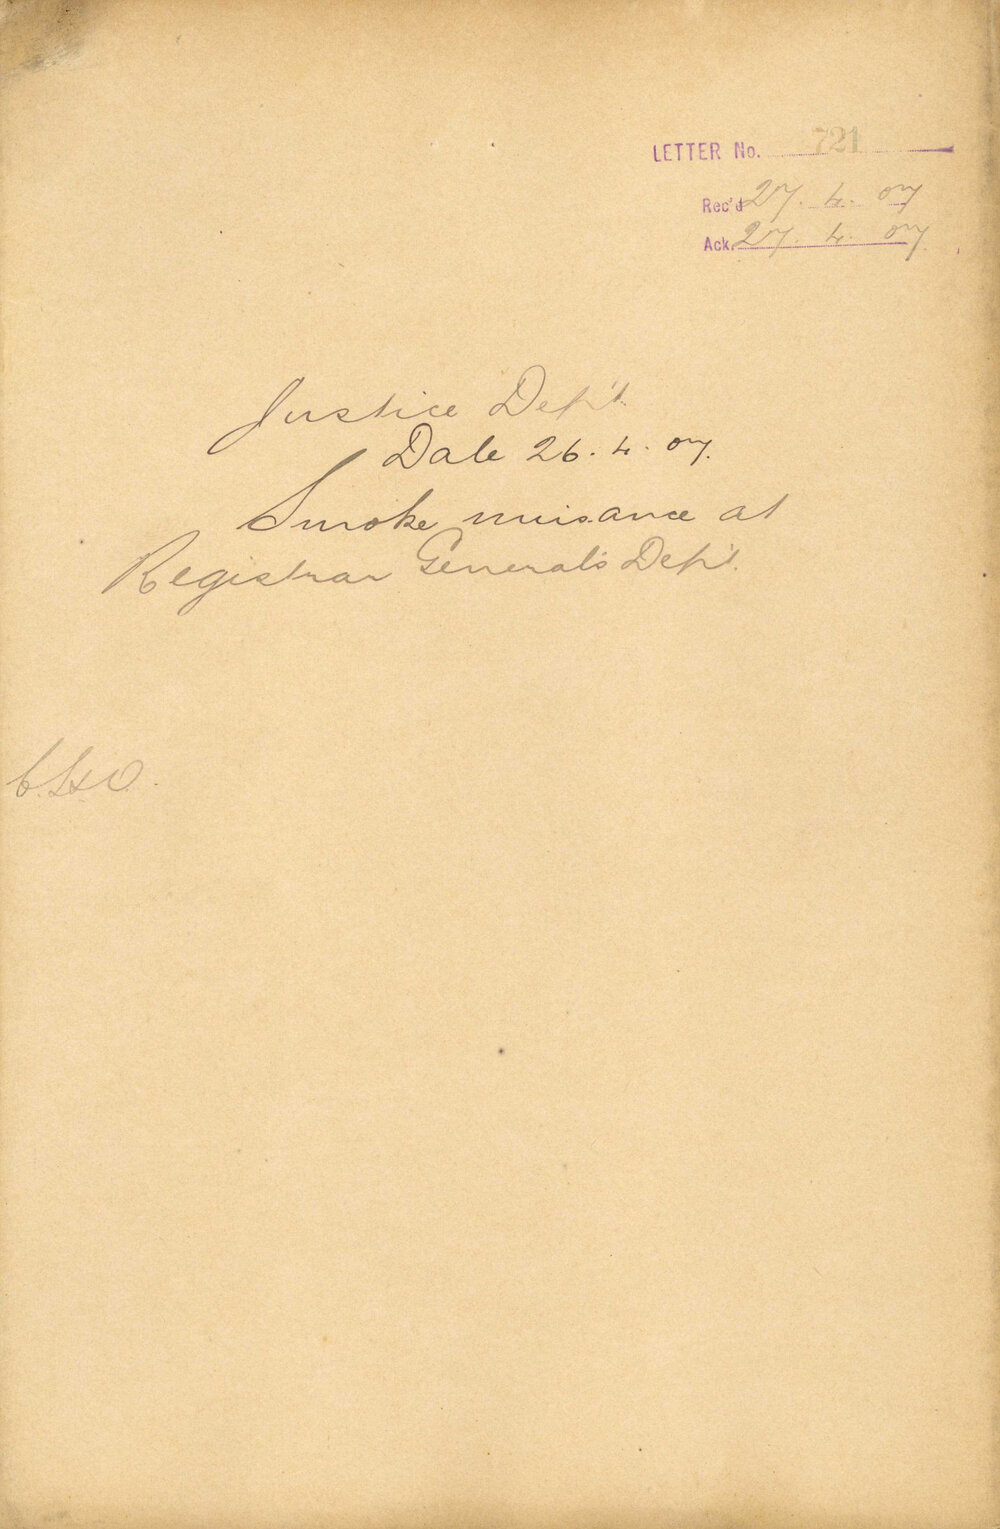 LETTER No. 721
Rec'd 27. 4. 07
Ack. 27. 4. 07
Justice Dep't.
Date 26. 4. 07.
Smoke nuisance at
Registrar General's Dep't.
C.H.O.